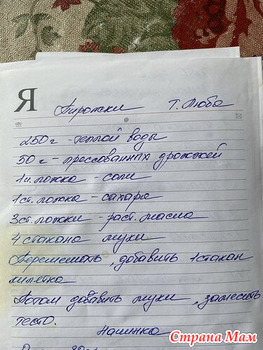 Я
Пирожки Т. Люба
250 г - теплой воды
50 г - прессованных дрожжей
1 ч. ложка - соли
1 ст. ложка - сахара
3 ст. ложки - раст. масла
4 стакана муки
Перемешать, добавить 1 стакан
кипятка
Потом добавить муки, замесить
тесто.
Начинка
Страна Мам